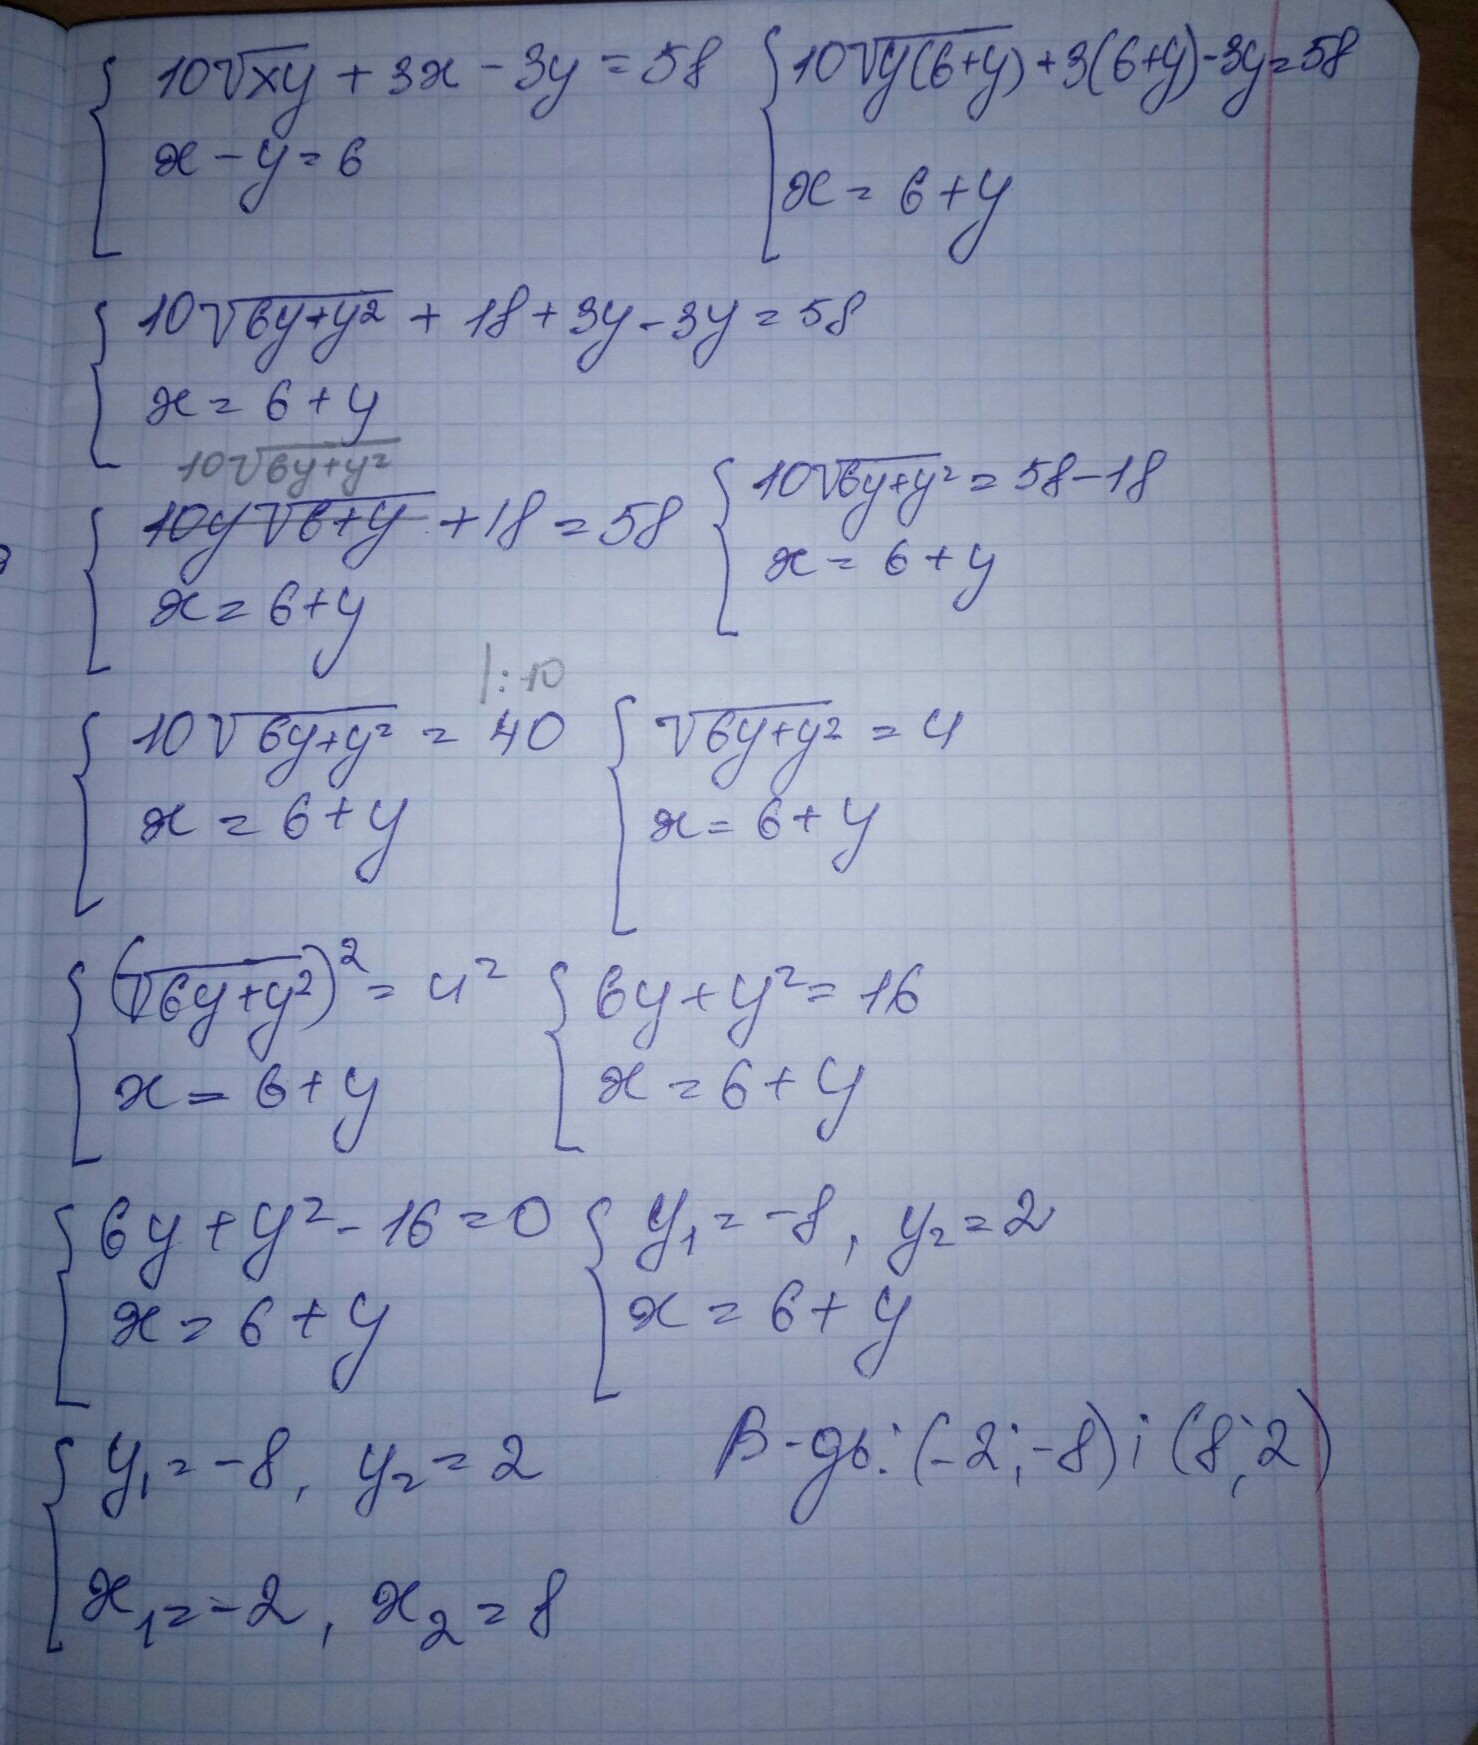 10√xy + 3x - 3y = 58
x - y = 6
10√y(6+y) + 3(6+y) - 3y = 58
x = 6 + y
10√6y+y² + 18 + 3y - 3y = 58
x = 6 + y
10√6y+y²
10y√6+y + 18 = 58
x = 6 + y
10√6y+y² = 58 - 18
x = 6 + y
|: 10
10√6y+y² = 40
x = 6 + y
√6y+y² = 4
x = 6 + y
(√6y+y²)² = 4²
x = 6 + y
6y + y² = 16
x = 6 + y
6y + y² - 16 = 0
x = 6 + y
y₁ = -8, y₂ = 2
x = 6 + y
y₁ = -8, y₂ = 2
x₁ = -2, x₂ = 8
В-дь: (-2; -8) і (8; 2)